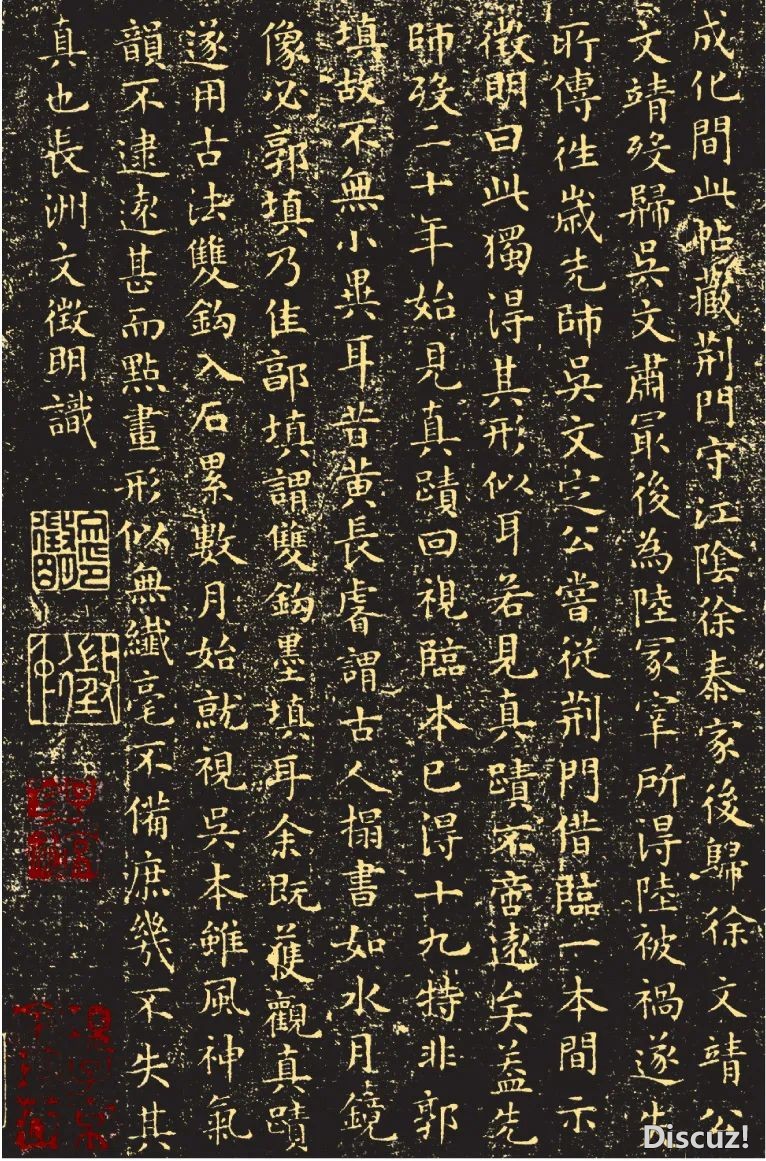 成化間此帖藏荊門守江陰徐泰家後歸徐文靖公
文靖歿歸吳文肅冣後為陸冢宰所得陸被禍遂失
所傳徃歲先師吳文定公嘗從荊門借臨一本間示
徵明曰此獨得其形似耳若見真蹟不啻遠矣葢先
師歿二十年始見真蹟回視臨本已得十九特非郭
填故不無小異耳昔黄長睿謂古人搨書如水月鏡
像必郭填乃佳郭填謂雙鈎墨填耳余既獲觀真蹟
遂用古法雙鈎入石累數月始就視吳本雖風神氣
韻不逮遠甚而點畫形似無纖毫不備庶幾不失其
真也長洲文徵明識
徵仲
Discuz!